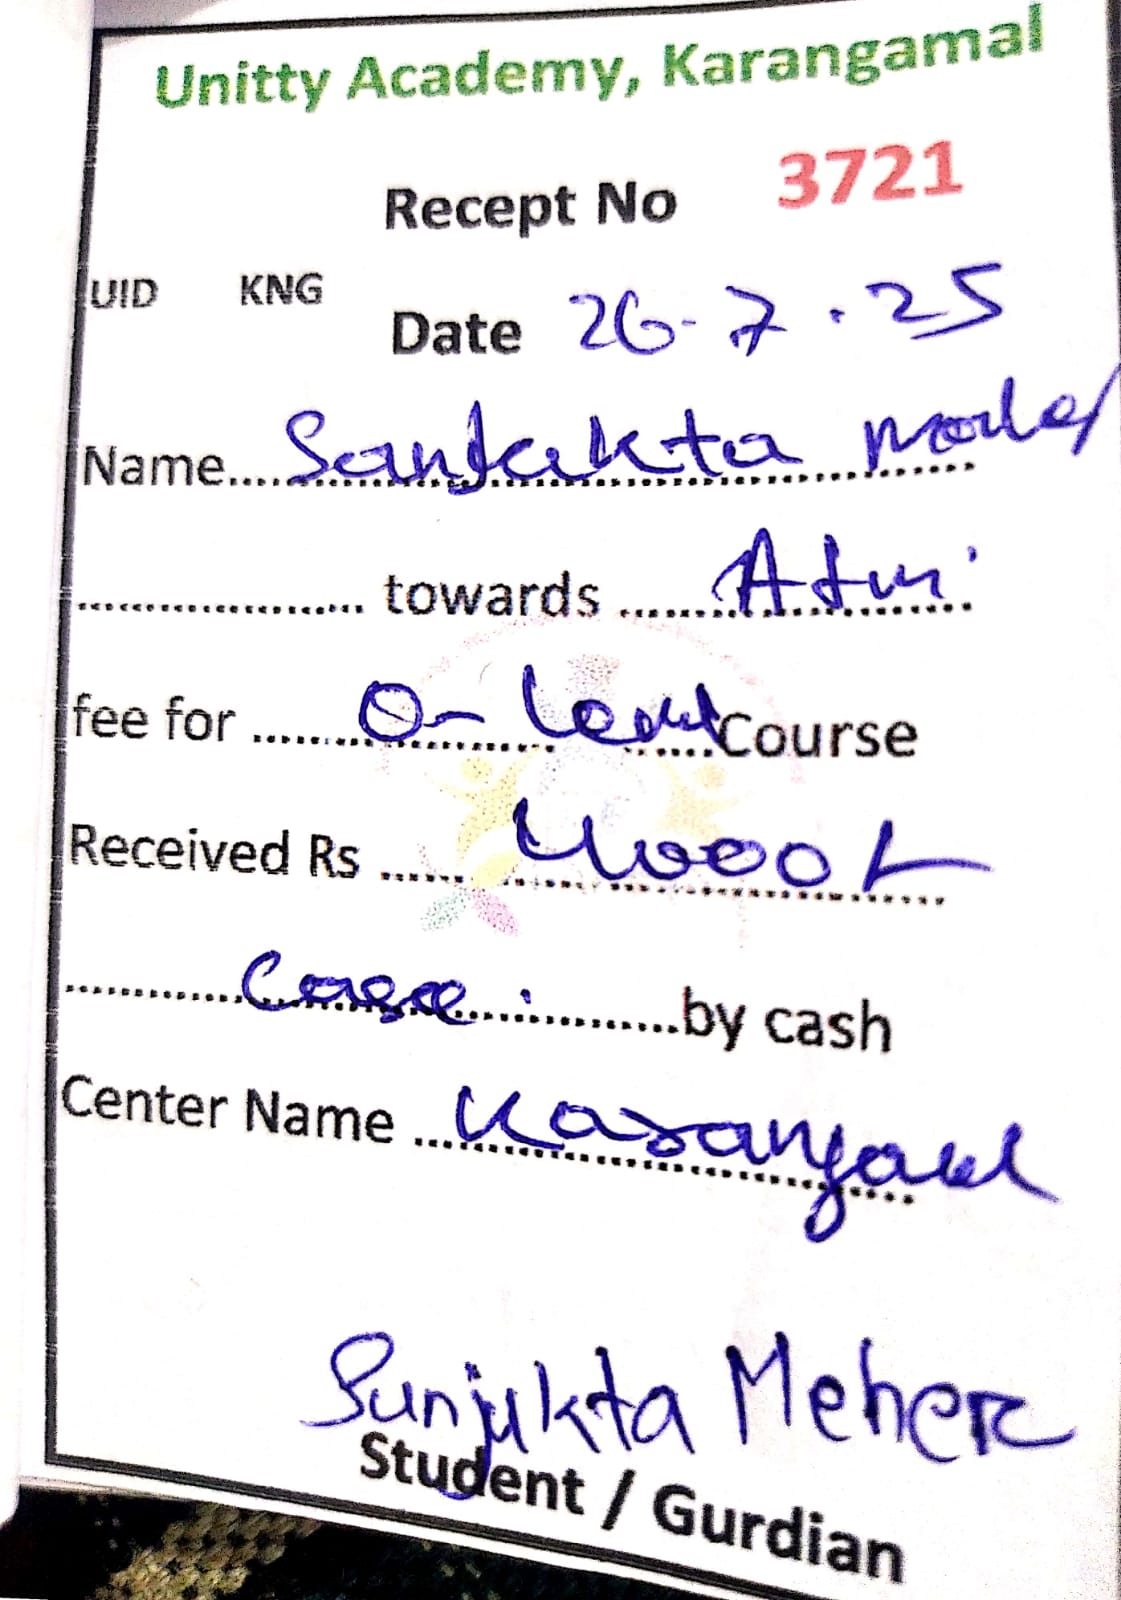 Unitty Academy, Karangamal
Recept No 3721
UID KNG
Date 26-7.25
Name.... Sanjukta
.................... towards ....... Adm.
fee for ....... O- level Course
Received Rs ...... 4000/-
............ Case ............ by cash
Center Name ...
Sunjukta Meher
Student / Gurdian